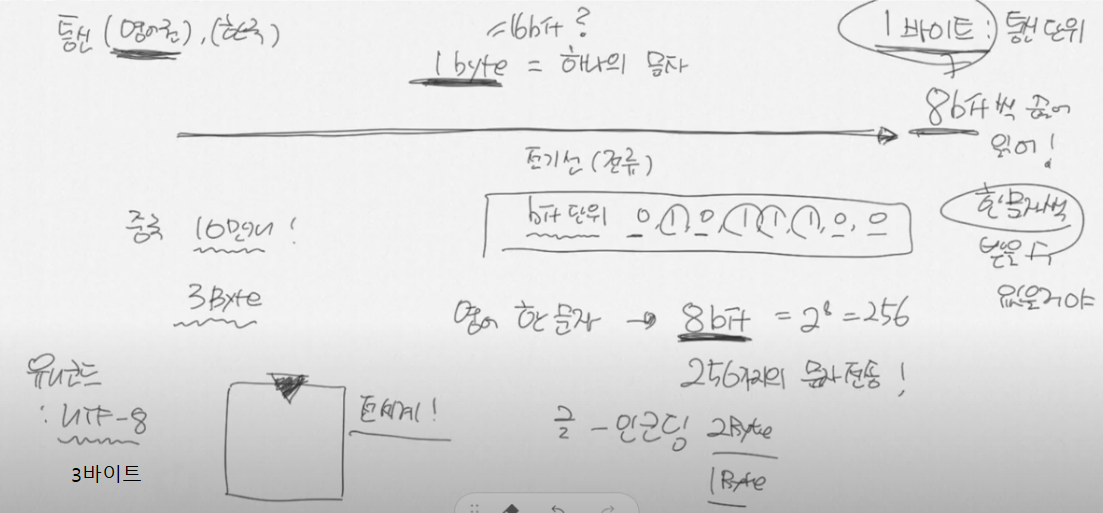 통신 (영어권), (한국)
≤16bit?
1 byte = 하나의 문자
1 바이트 : 통신 단위
8bit씩 끊어
읽어!
전기선 (전류)
bit 단위 0, 1, 0, 1, 1, 1, 0, 0
한 문자씩
받을 수
있을거야
중국 10만개!
3Byte
영어 한 문자 → 8bit = 2⁸ = 256
256가지의 문자 전송!
유니코드
: UTF-8
3바이트
전세계!
인코딩 2Byte
1Byte